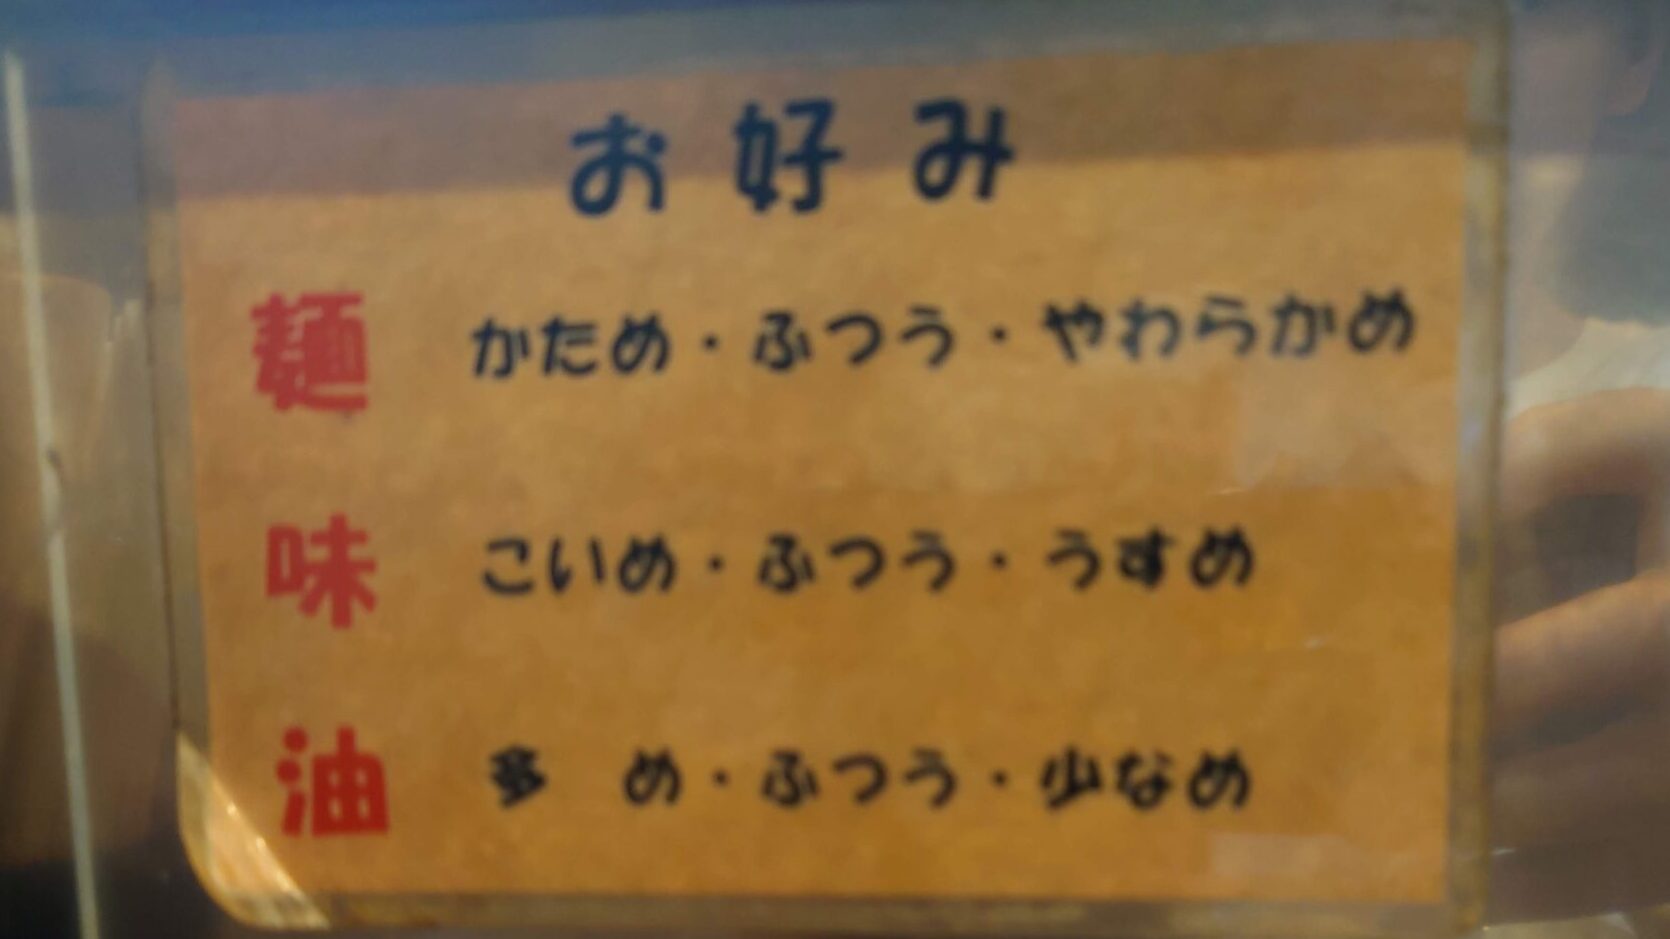 お好み
麺 かため・ふつう・やわらかめ
味 こいめ・ふつう・うすめ
油 多 め・ふつう・少なめ